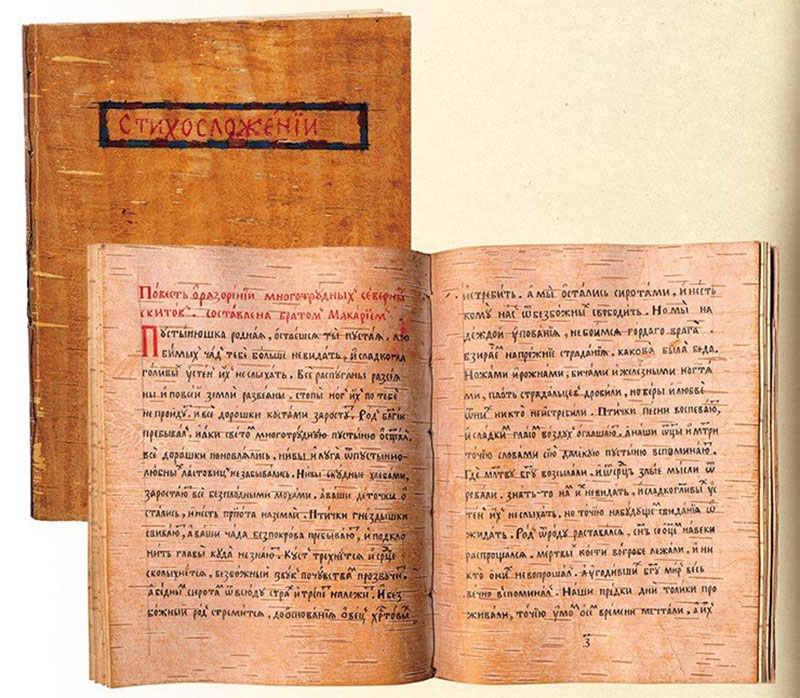 СТИХОСЛОЖЕНІИ
Повесть ѡ разоренїи многотрудныхъ северны
скитовъ. составлена братомъ Макарїемъ
Пустынюшка родная, остаешся ты пустая, а лю
бимыхъ чадъ тебѣ больше невидать, и сладкогла
голивыхъ устен ихъ неслыхать. Все распуганы разсея
ны и повсей земли развеяны. стопы ногъ ихъ по тебе
не пройдутъ. и все дорошки костами заростутъ. Родъ
пребывалъ. и аки светомъ многотрудную пустыню
Все дорошки поновлялись, нивы и луга ѿ пустынно
любныхъ ластовицъ незабывались. Нивы скудные хлебами,
заростаютъ все безплодными мохами. а ваши деточки о
стались, и несть прїюта наземли. Птички гнездышки
свиваютъ, а ваши чада безпокрова пребываютъ, и подкло
нить главы куда незнаютъ. Кустъ трехнется и срце
сколыхнется, безбожный звукъ почувства прозвучи
а бедны сирота ѿвсюду страхъ и трепетъ належи. И без
божный родъ стремится, до основанїя овецъ хртовы
истребить. а мы остались сиротами, и несть
кому насъ ѿ безбожныхъ свободить. Но мы на
деждой упованїя, небоимся гордаго врага
взираемъ напрежнїе страданїя. какова была беда.
Ножами и рожнами, бичами и железными ногтя
ми, плоть страдальцевъ дробили, но веры и любве
ѿ нихъ никто неистребили. Птички песни воспеваютъ,
и сладкимъ гласомъ воздухъ оглашаютъ. а наши ѿцы и мтри
точїю словами сїю далекую пустыню вспоминаютъ.
Где млтву бгу возсылали. и ѿ срець злые мысли ѿ
ревали. знать-то намъ ихъ невидать, и сладкогливыхъ ус
тен ихъ неслыхать, но точїю набудуще свиданїя ѿ
жидать. Родъ ѿ роду раставался, снъ со ѿцемъ навеки
распрощался. мертвы кости вогробе лежали, и ни
кто о нихъ невопрошалъ. а угодившихъ бгу миръ весь
вечно вспоминалъ. Наши предки дни толики про
живали, точїю умомъ о семъ времени мечтали, а ихъ